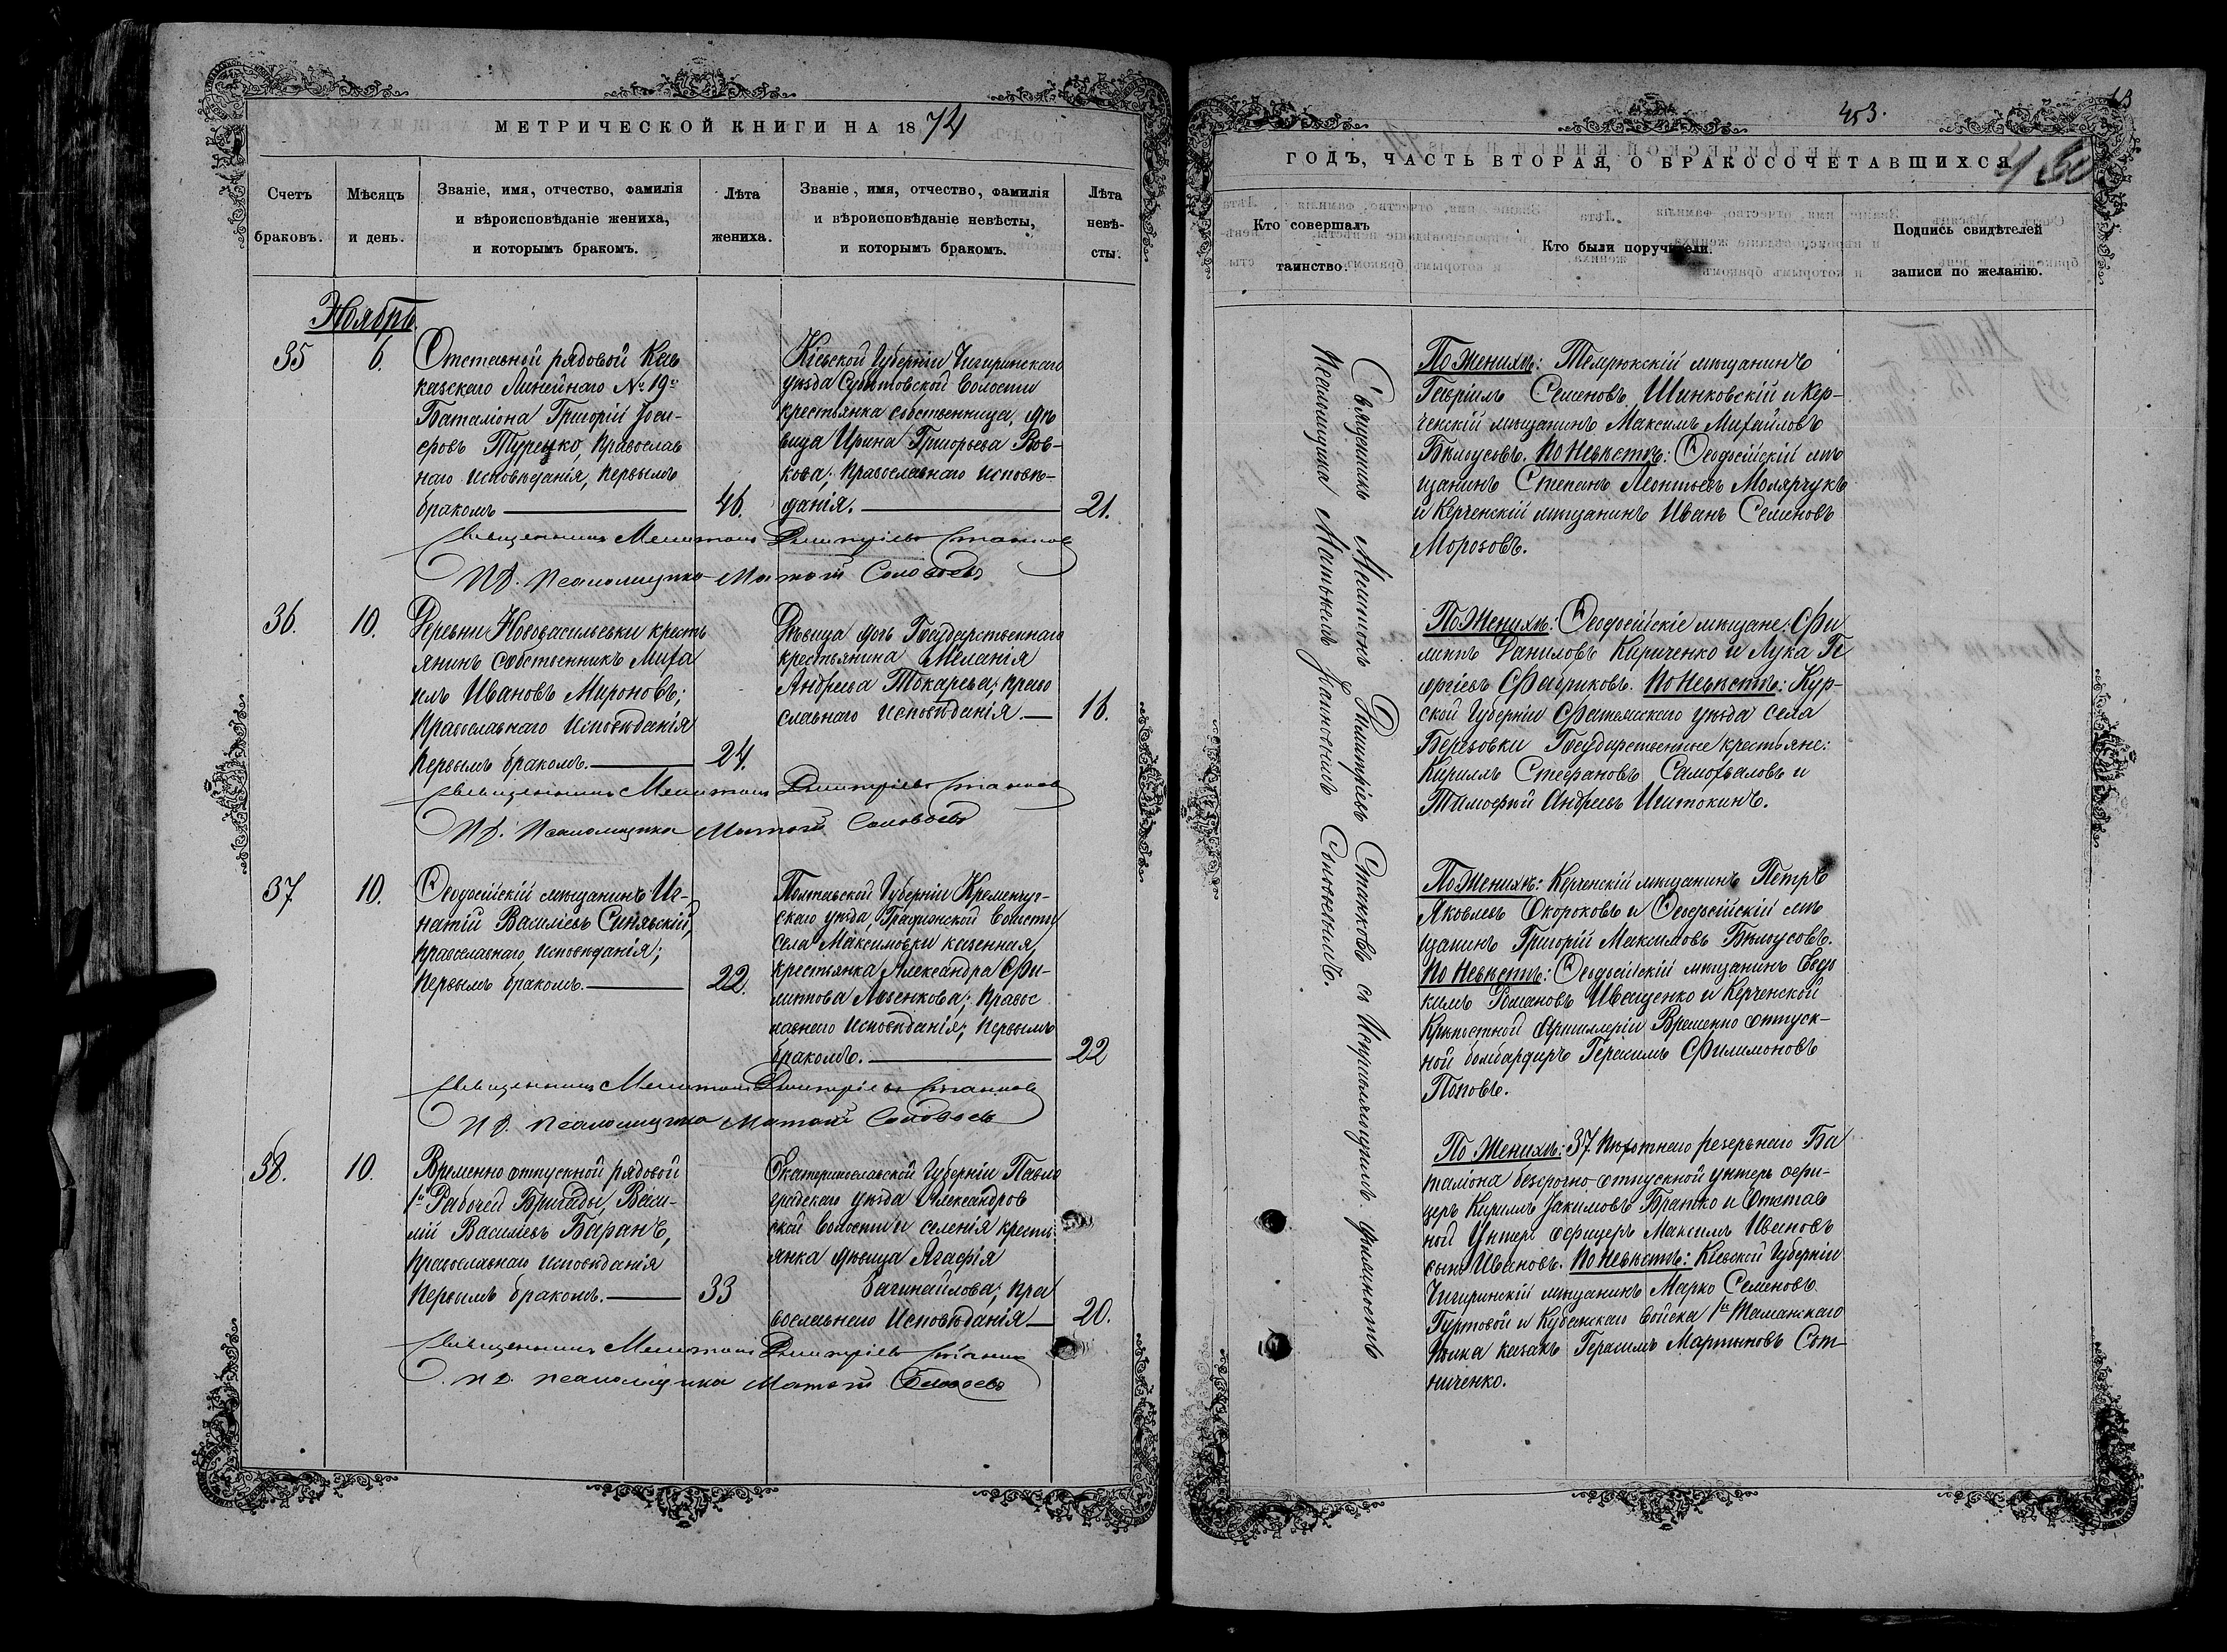 МЕТРИЧЕСКОЙ КНИГИ НА 1874
Счетъ браковъ.
Мѣсяцъ и день.
Званіе, имя, отчество, фамилія
и вѣроисповѣданіе жениха,
и которымъ бракомъ.
Лѣта
жениха.
Званіе, имя, отчество, фамилія
и вѣроисповѣданіе невѣсты,
и которымъ бракомъ.
Лѣта
невѣ-
сты.
Ноябрь
35
6.
Отставной рядовой Кав
казскаго Линейнаго № 19го
Баталіона Григорій Іоси-
фовъ Турецко, православ
наго исповѣданія, первымъ
бракомъ
46.
Кіевской Губерніи Чигиринскаго
уѣзда Волости
крестьянка собственница, дѣ
вица Ирина Григорьева Вов-
кова; православнаго исповѣ-
данія.
21.
Священникъ Мелитонъ Дмитріевъ Станковъ
И.д. псаломщика Матѳей Соловьевъ
36.
10.
Деревни Нововасильевки кресть
янинъ собственникъ Миха
илъ Ивановъ Мироновъ;
православнаго исповѣданія
первымъ бракомъ.
24.
Дѣвица дочь Государственнаго
крестьянина Меланія
Андреева Токарева; право
славнаго исповѣданія.
16.
Священникъ Мелитонъ Дмитріевъ Станковъ
И.д. псаломщика Матѳей Соловьевъ
37
10.
Ѳеодосійскій мѣщанинъ Иг-
натій Василіевъ Синявскій,
православнаго исповѣданія;
первымъ бракомъ.
22.
Полтавской Губерніи Кременчуг-
скаго уѣзда, волости
села Максимовки казенная
крестьянка Александра Фи-
липпова; правос
лавнаго исповѣданія; первымъ
бракомъ.
22
Священникъ Мелитонъ Дмитріевъ Станковъ
И.д. псаломщика Матѳей Соловьевъ
38.
10.
Временно отпускной рядовой
1й Рабочей Бригады, Васи-
лій Василіевъ Баранъ,
православнаго исповѣданія
первымъ бракомъ.
33
Екатеринославской Губерніи Павло
градскаго уѣзда Александров
ской волости и селенія кресть
янка дѣвица Агафія
пра
вославнаго исповѣданія
20.
Священникъ Мелитонъ Дмитріевъ Станковъ
И.д. псаломщика Матѳей Соловьевъ
453.
ГОДЪ, ЧАСТЬ ВТОРАЯ, О БРАКОСОЧЕТАВШИХСЯ
Кто совершалъ
таинство.
Кто были поручители.
Подпись свидѣтелей
записи по желанію.
Священникъ Мелитонъ Дмитріевъ Станковъ съ Исправляющимъ должность
псаломщика Матѳеемъ Соловьевымъ.
По Женихѣ: Темрюкскій мѣщанинъ
Гавріилъ Семеновъ Шинковскій и Кер-
ченскій мѣщанинъ Максимъ Михайловъ
Бѣлоусовъ. По Невѣстѣ: Ѳеодосійскій мѣ
щанинъ Степанъ Леонтьевъ Молярчукъ
и Керченскій мѣщанинъ Иванъ Семеновъ
Морозовъ.
По Женихѣ: Ѳеодосійскіе мѣщане: Фи
липпъ Даниловъ Кириченко и Лука Ге
оргіевъ Фавриковъ. По Невѣстѣ: Кур-
ской Губерніи Фатежскаго уѣзда села
Березовки Государственные крестьяне:
Кириллъ Стефановъ Самохваловъ и
Тимофей Андреевъ
По Женихѣ: Керченскій мѣщанинъ Петръ
Яковлевъ Окороковъ и Ѳеодосійскій мѣ
щанинъ Григорій Максимовъ Бѣлоусовъ.
По Невѣстѣ: Ѳеодосійскій мѣщанинъ Евдо
кимъ Романовъ Иващенко и Керченской
Крѣпостной Артиллеріи Временно отпуск-
ной бомбардиръ Герасимъ Филимоновъ
Поповъ.
По Женихѣ: 37 пѣхотнаго резервнаго Ба
таліона безсрочно-отпускной унтеръ офи-
церъ Кириллъ Іакимовъ Братко и Отстав
ной Унтеръ офицеръ Максимъ Ивановъ
сынъ Ивановъ. По Невѣстѣ: Кіевской Губерніи
Чигиринскій мѣщанинъ Марко Семеновъ
Гуртовой и Кубанскаго войска 1го Таманскаго
полка казакъ Герасимъ Мартыновъ Сот-
ниченко.